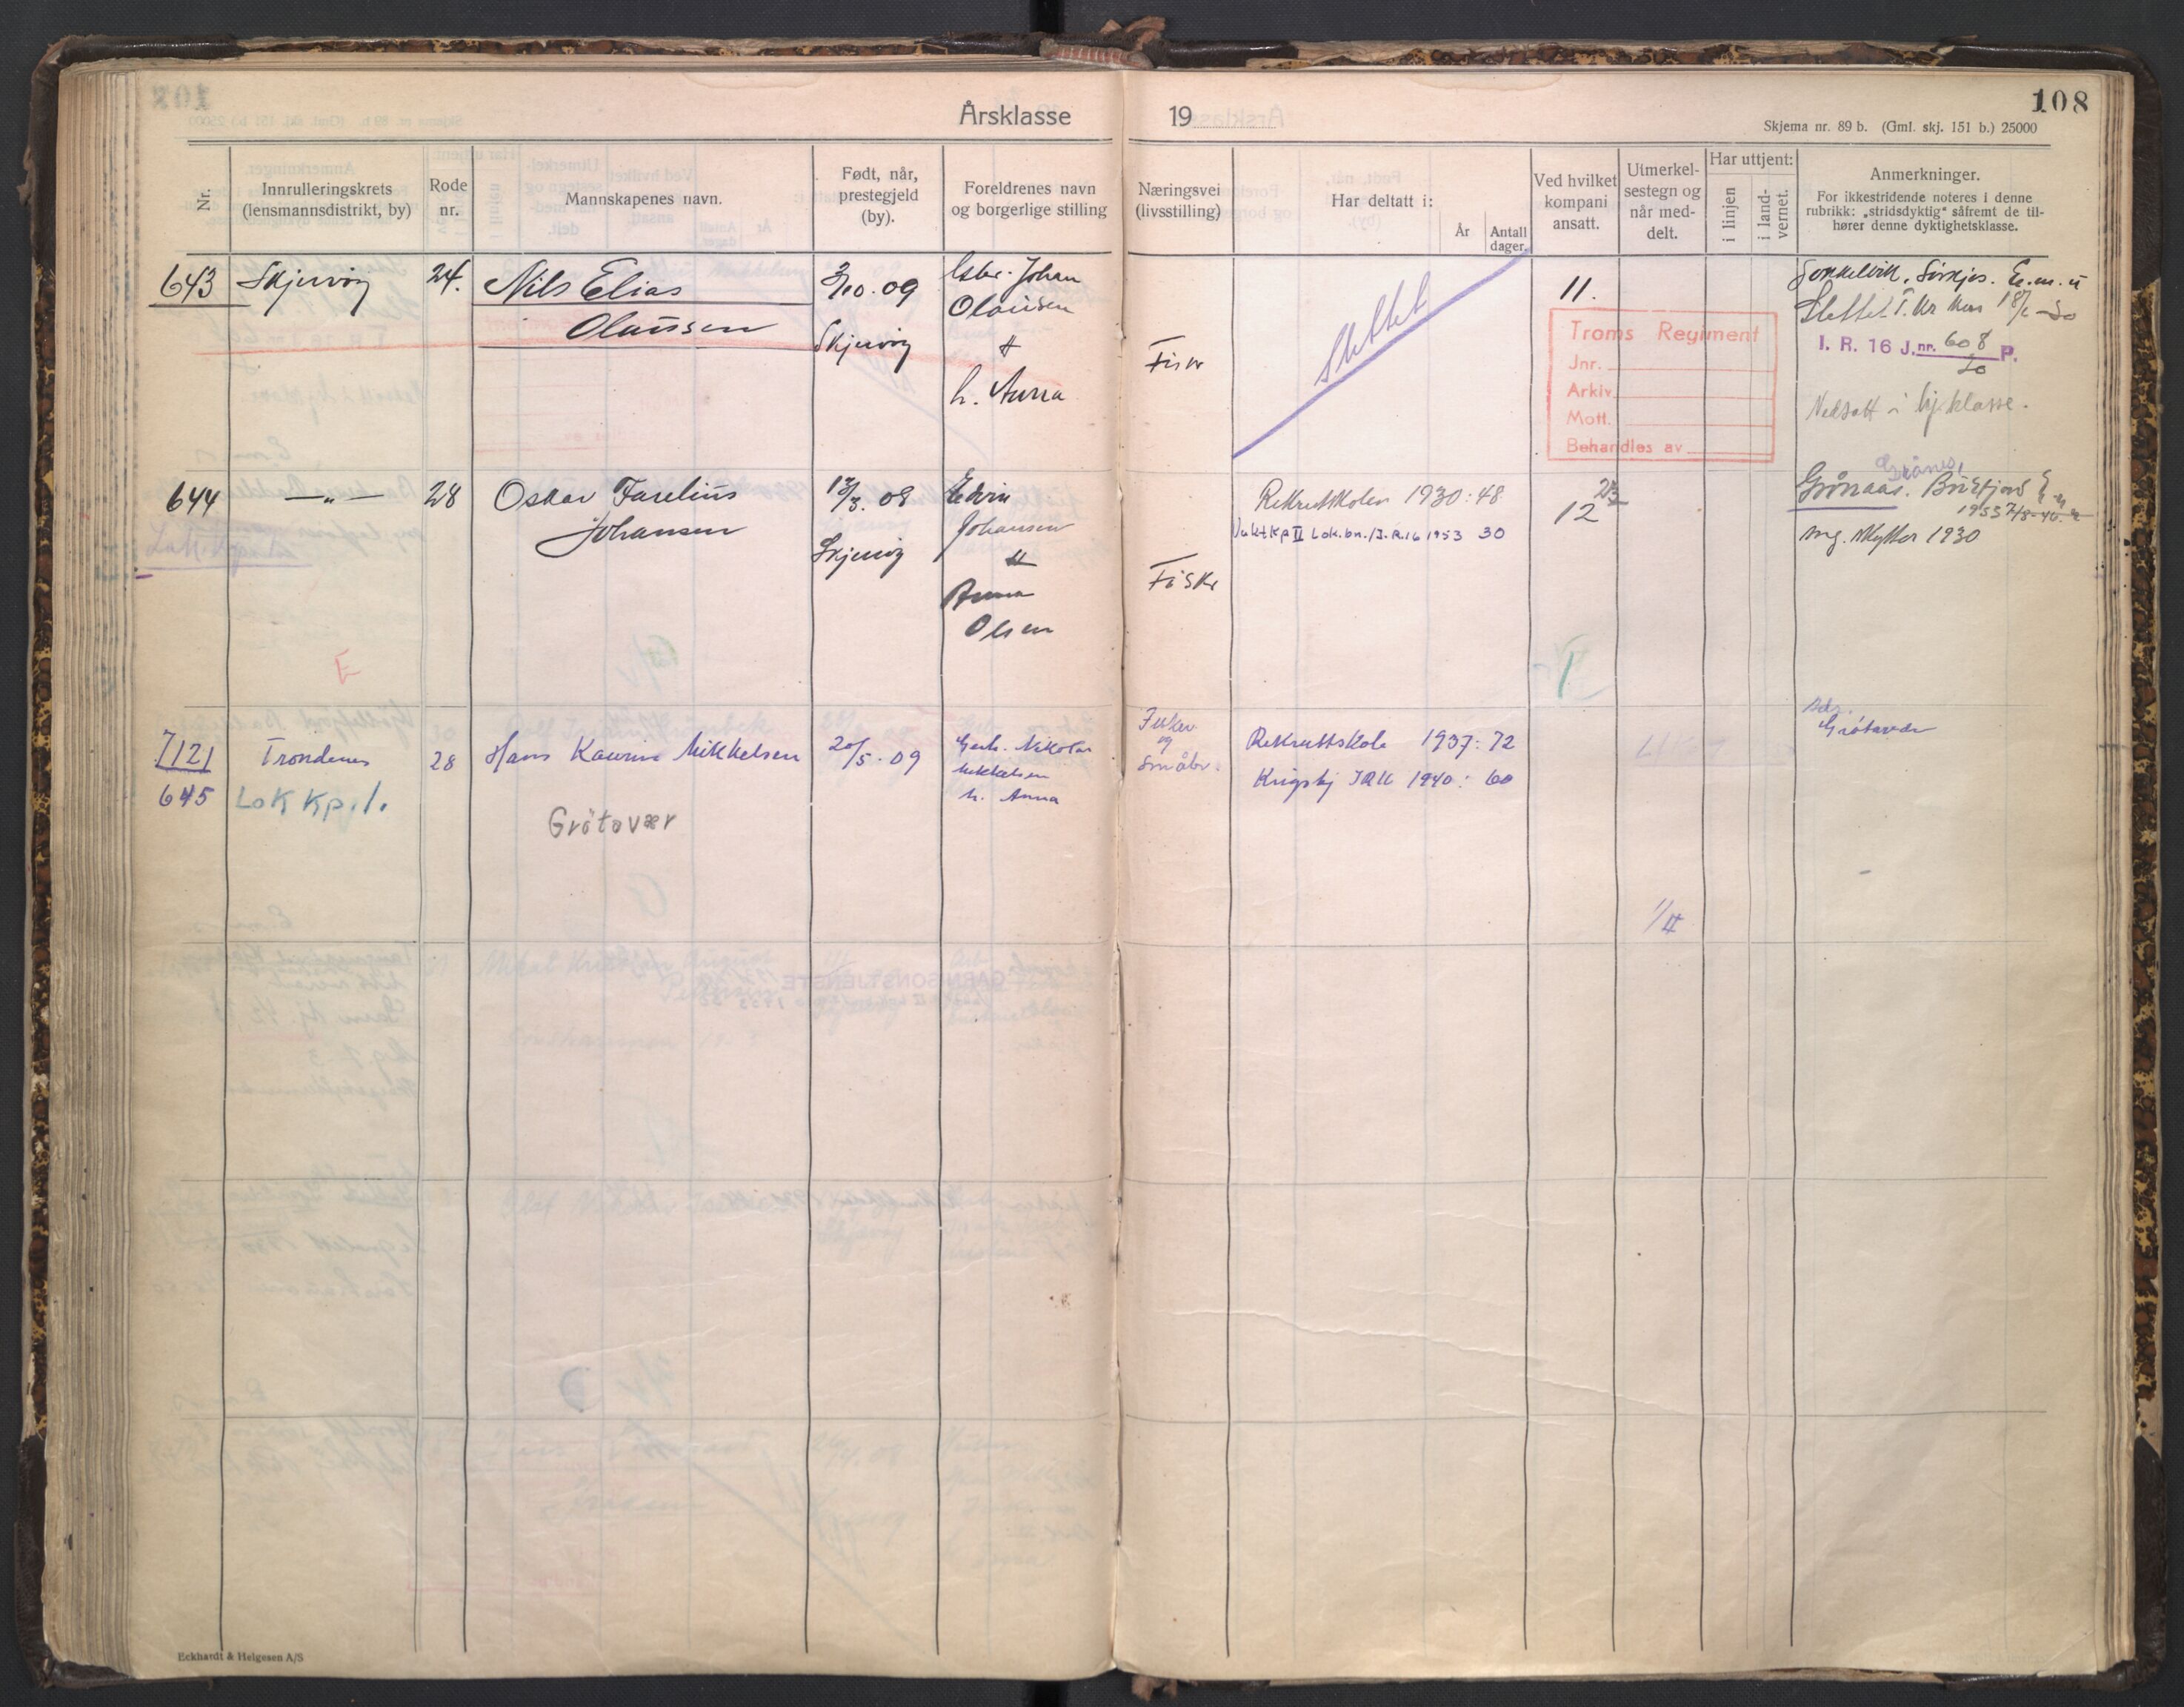 108
Årsklasse 19
Skjema nr. 89 b. (Gml. skj. 151 b.) 25000
Nr.
Innrulleringskrets
(lensmannsdistrikt, by)
Rode
nr.
Mannskapenes navn.
Født, når,
prestegjeld
(by).
Foreldrenes navn
og borgerlige stilling
Næringsvei
(livsstilling)
Har deltatt i:
År
Antall
dager.
Ved hvilket
kompani
ansatt.
Utmerkel-
sestegn og
når med-
delt.
Har uttjent:
i linjen
i land-
vernet.
Anmerkninger.
For ikkestridende noteres i denne
rubrikk: „stridsdyktig" såfremt de til-
hører denne dyktighetsklasse.
643
Skjervøy
24.
Nils Elias
Olaussen
3/10.09
Skjervøy
Johan
Olaussen
H
h. Anna
Slettet
11.
Troms Regiment
Jnr.
Arkiv
Mott.
Behandles av
Slettet
I. R. 16 J.nr. 608 P.
30
Nedsatt i hj. klasse.
644
— „ —
28
Oskar Farelius
Johansen
13/3.08
Skjervøy
Edvin
Johansen
H
Anna
Olsen
Fisk
Rekruttskolen 1930: 48
Vaktkp II Lok.bn./I.R.16 1953 30
12
mg. skytter 1930
E
T
7121
645
Trondenes
Lok Kp. 1.
28
Hans Kaurin Mikkelsen
Grötavær
20/5.09
Nikolai
Mikkelsen
h. Anna
Fisker
og
småbr.
Rekruttskole 1937: 72
Krigshj IR16 1940: 60
1/II
Grötavær
Eckhardt & Helgesen A/S